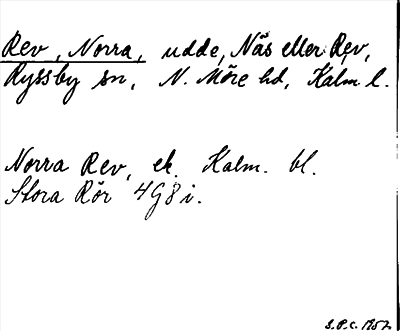 Rev, Norra, udde, Näs eller Rev,
Ryssby sn, N. Möre hd, Kalm l.
Norra Rev, ek. Kalm. bl.
Stora Rör 4G8i.
S.P.C. 1952